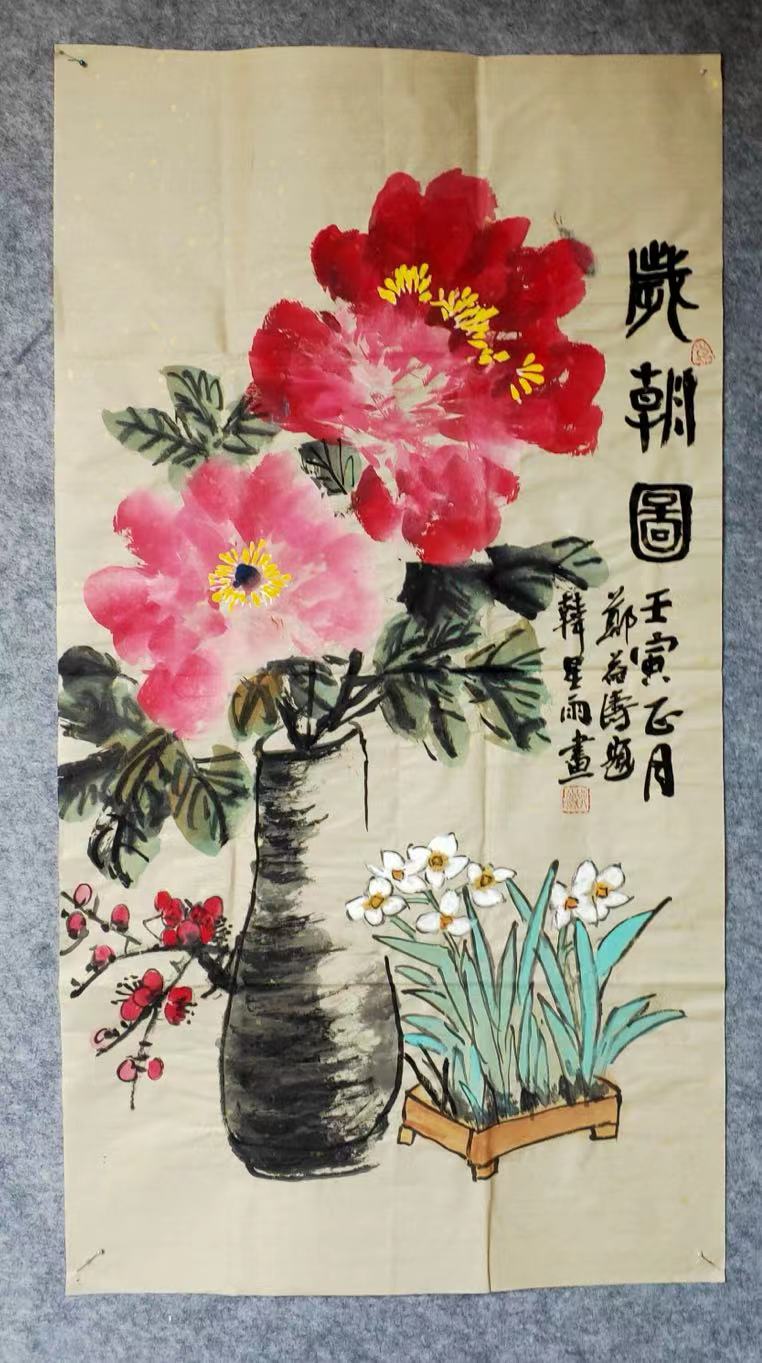 歲朝圖
壬寅正月
鄭为濤題
韓星雨畫